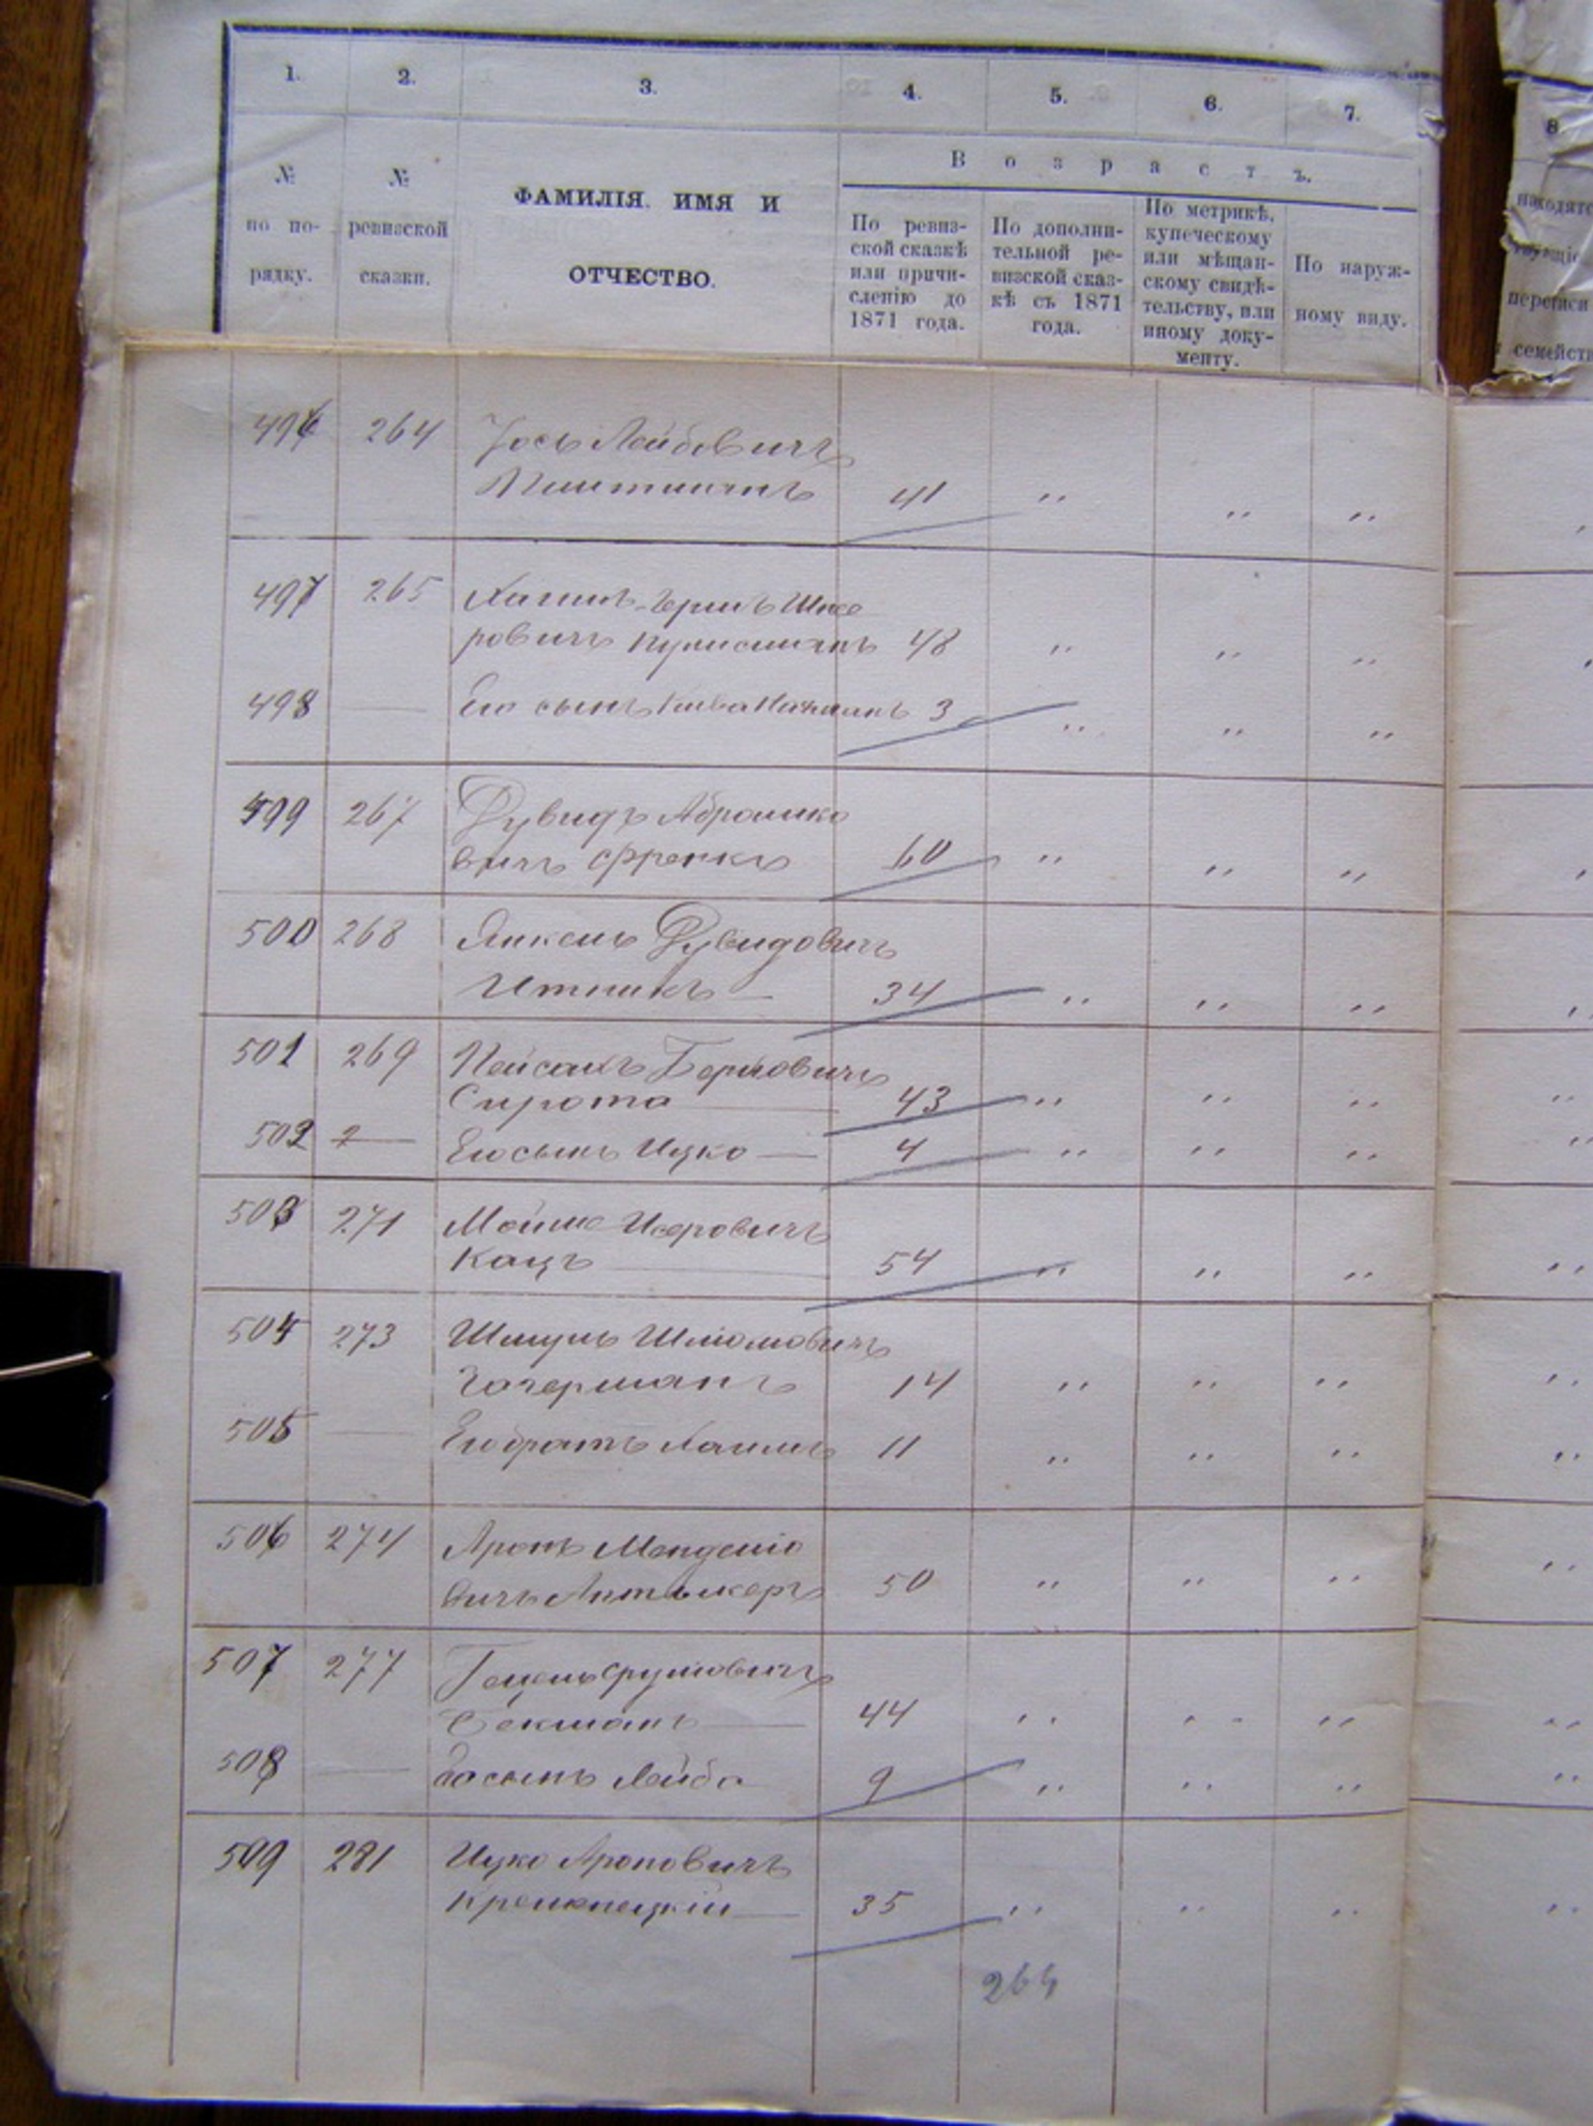 1. 2. 3. 4. 5. 6. 7.
8
№ по порядку.
№ ревизской сказки.
ФАМИЛІЯ. ИМЯ И
ОТЧЕСТВО.
Возрастъ.
По ревиз-
ской сказкѣ
или причи-
сленію до
1871 года.
По дополни-
тельной ре-
визской сказ-
кѣ съ 1871
года.
По метрикѣ,
купеческому
или мѣщан-
скому свидѣ-
тельству, или
иному доку-
менту.
По наруж-
ному виду.
496 264 Іось Лейбовичъ
41 " " "
497 265 Хаимъ-Гершъ
ровичъ 48 " " "
498 — Его сынъ Нахманъ 3 " " "
499 267 Дувидъ Абрамко
вичъ Френкъ 60 " " "
500 268 Янкель Дувидовичъ
Итникъ — 34 " " "
501 269 Пейсахъ Берковичъ
Сирота 43 " " "
502 — Его сынъ Ицко — 4 " " "
503 271 Мойше Исеровичъ
Кацъ 54 " " "
504 273 Шмуль Шліомовичъ
14 " " "
505 — Его братъ Хаимъ 11 " " "
506 274 Аронъ Менделіо
вичъ 50 " " "
507 277 Срулiовичъ
44 " " "
508 — Его сынъ Лейба 9 " " "
509 281 Ицко Ароновичъ
Кременецкій — 35 " " "
264